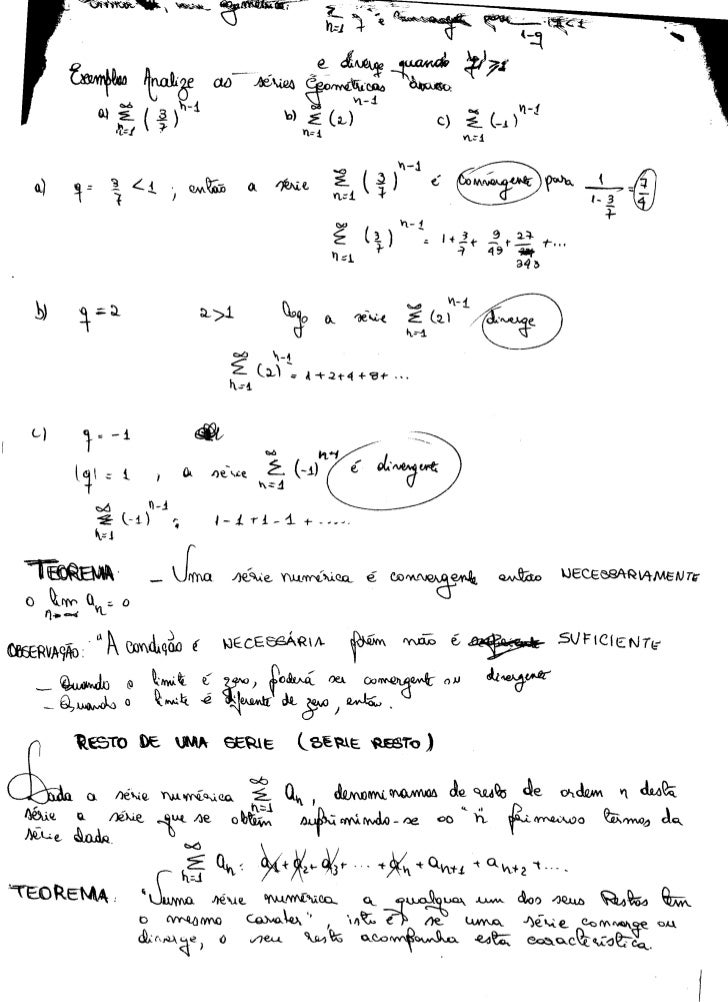 geométrica: ∞Σn=1 q
1-q
e diverge quando |q|≥1
Exemplos Analize as séries Geométricas abaixo:
a) ∞Σn=1 (3/7)^n-1 b) ∞Σn=1 (2)^n-1 c) ∞Σn=1 (-1)^n-1
a) q = 3/7 < 1 ; então a série ∞Σn=1 (3/7)^n-1 é convergente para 1/(1-3/7) = 7/4
∞Σn=1 (3/7)^n-1 = 1+3/7+ 9/49+27/343 +...
b) q = 2 2>1 logo a série ∞Σn=1 (2)^n-1 diverge
∞Σn=1 (2)^n-1 = 1+2+4+8+ ...
c) q = -1
|q| = 1 , a série ∞Σn=1 (-1)^n-1 é divergente
∞Σn=1 (-1)^n-1 = 1-1+1-1+.....
TEOREMA - Uma série numérica é convergente então NECESSARIAMENTE
o lim n→∞ an = 0
OBSERVAÇÃO: "A condição é NECESSÁRIA porém não é SUFICIENTE
- Quando o limite é zero, poderá ser convergent ou divergente
- Quando o limite é diferente de zero, então.
RESTO DE UMA SERIE (SERIE RESTO)
Dada a série numérica ∞Σn=1 an, denominamos de resto de ordem n desta
série a série que se obtem suprimindo-se os "n" primeiros termos da
série dada.
∞Σn=1 an = a1+a2+a3+ ... +an + an+1 + an+2 +....
TEOREMA: "Numa série numérica a qualquer um dos seus Restos tem
o mesmo carater", isto é se uma série converge ou
diverge, o seu resto acompanha esta característica.